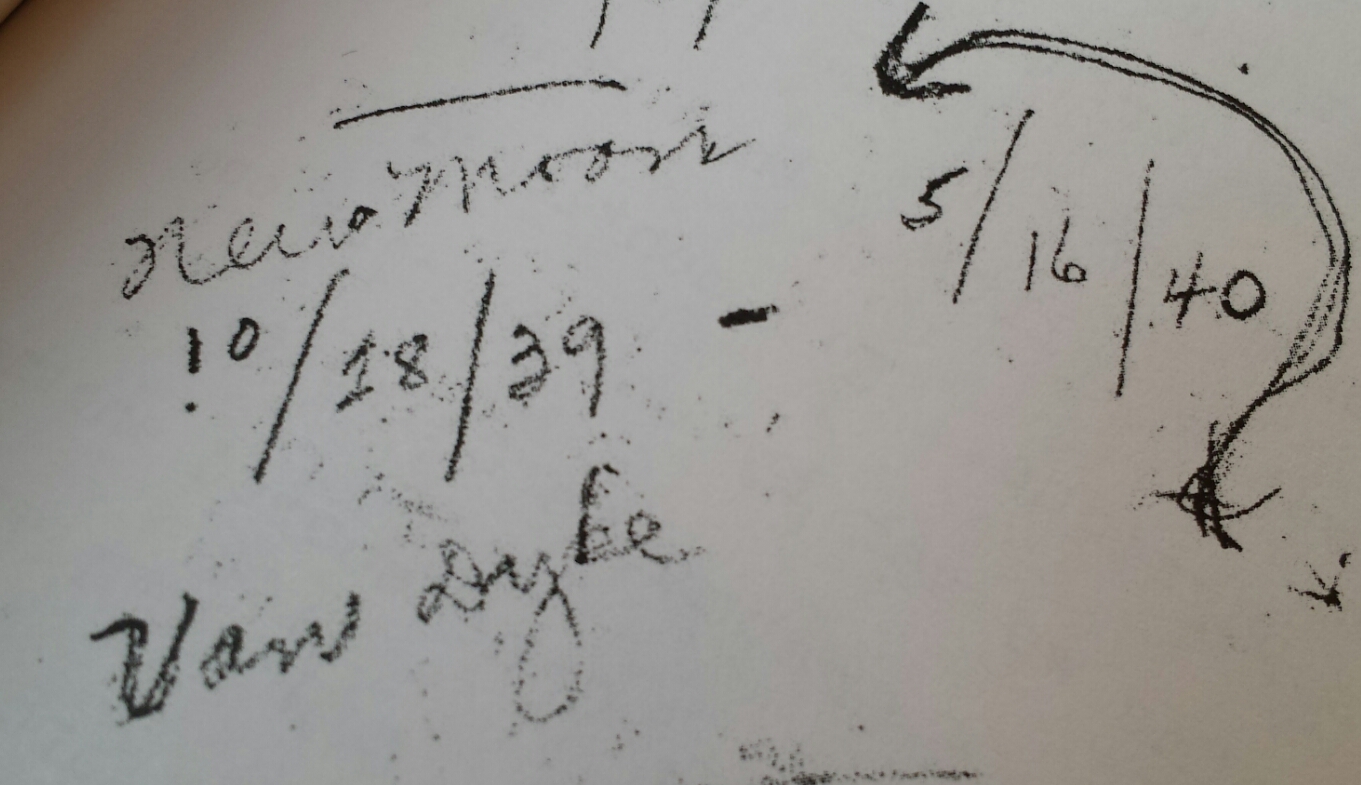 New Moon
10/18/39 - 5/16/40
Van Dyke